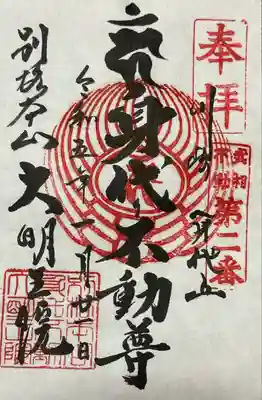 奉拝
武相
不動
第二番
川崎
身代り不動尊
令和五年一月廿一日
別格本山 大明王院